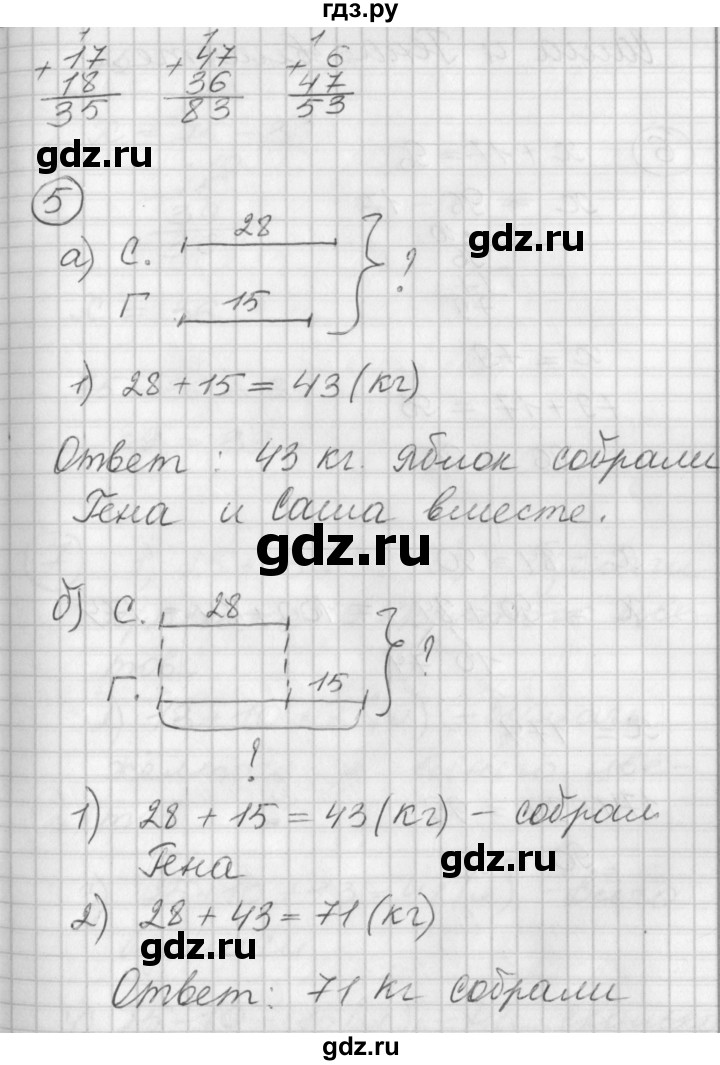 гдз.ру
1 1 1
+ 17 + 47 + 6
18 36 47
35 83 53
gdz.ru
5
28
gdz.ru
а) С.
?
Г 15
1) 28 + 15 = 43 (кг)
Ответ : 43 кг. яблок собрали
Гена и Саша вместе.
gdz.ru
б) С. 28
?
Г. 15
?
1) 28 + 15 = 43 (кг) – собрал
Гена
gdz.ru
2) 28 + 43 = 71 (кг)
gdz.ru
Ответ: 71 кг собрали
gdz.ru